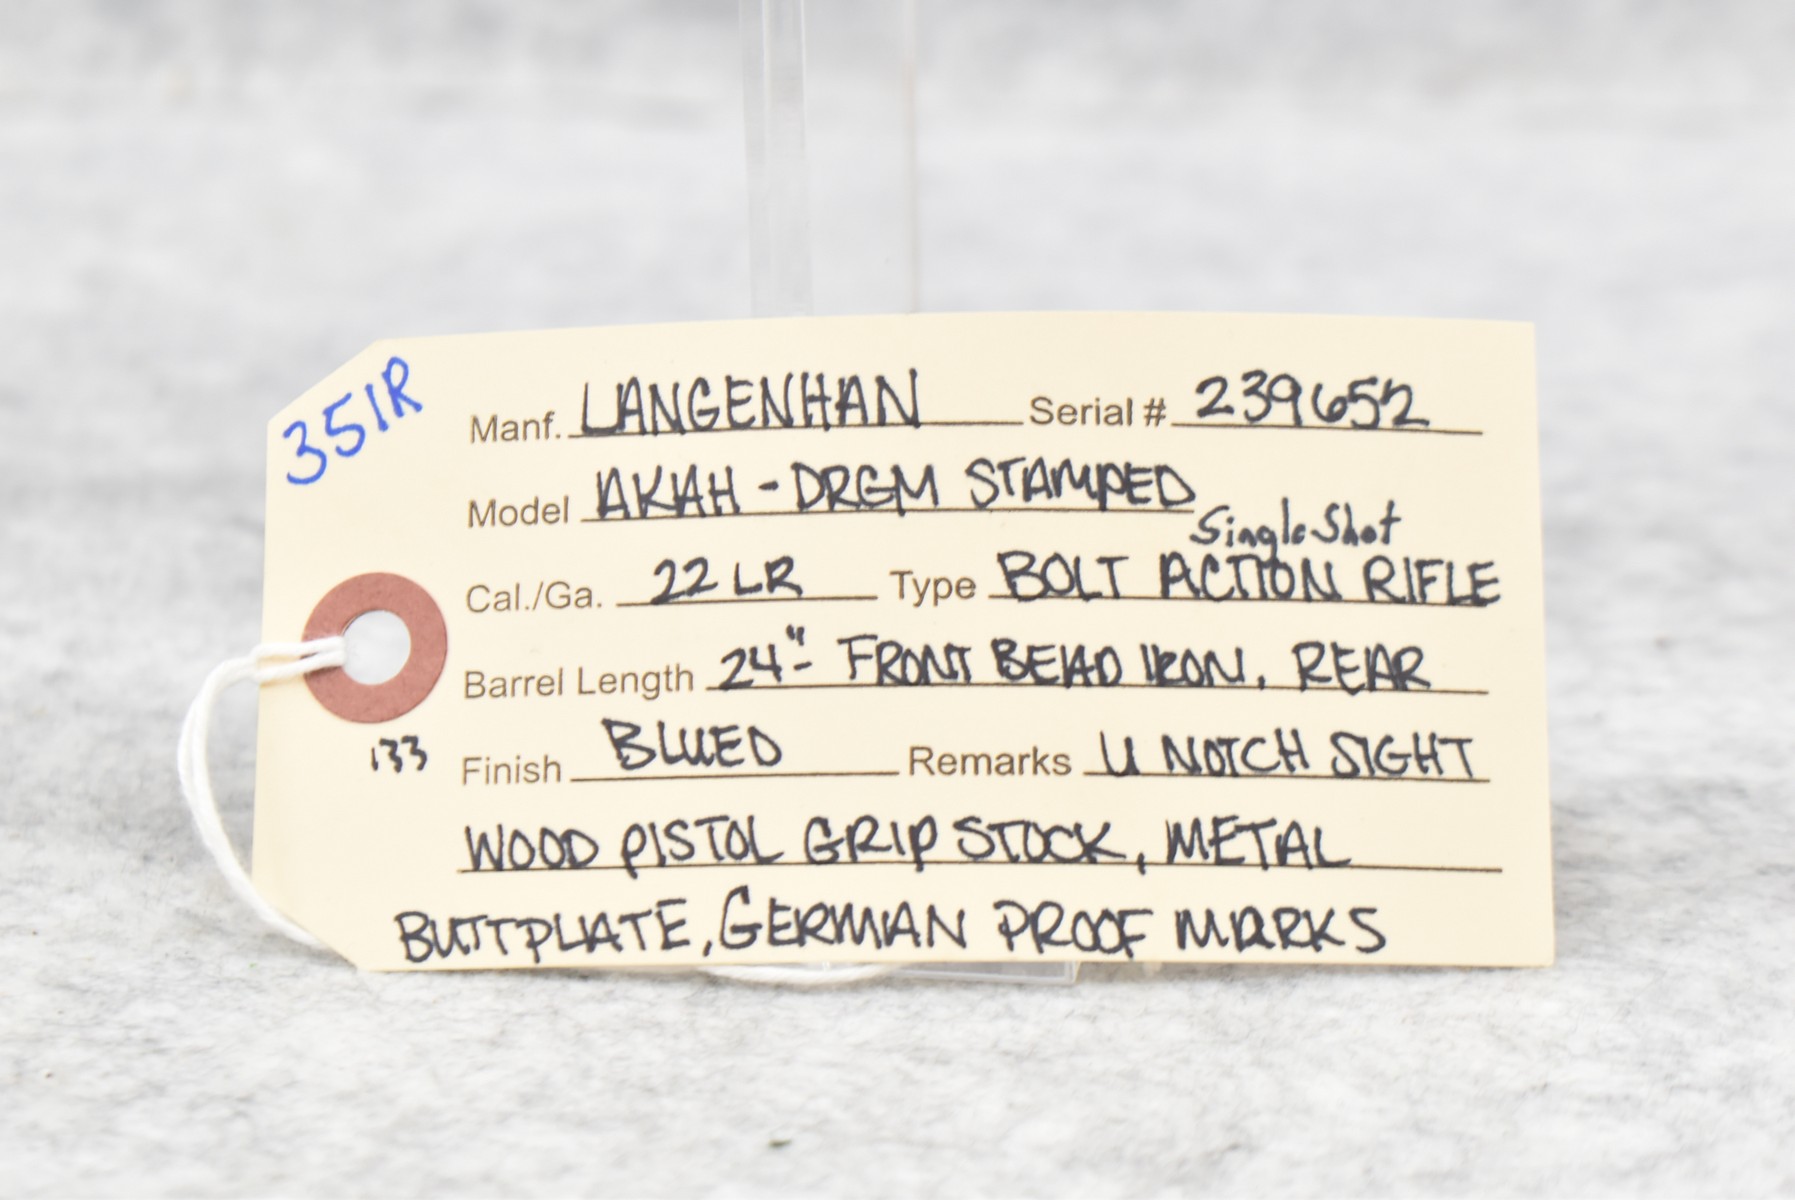 351R
Manf. LANGENHAN Serial # 239652
Model AKAH - DRGM STAMPED
Single Shot
Cal./Ga. 22 LR Type BOLT ACTION RIFLE
Barrel Length 24" - FRONT BEAD IRON, REAR
133
Finish BLUED Remarks U NOTCH SIGHT
WOOD PISTOL GRIP STOCK, METAL
BUTTPLATE, GERMAN PROOF MARKS